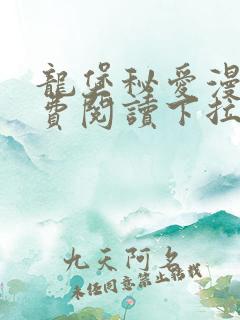 龍堡秘愛漫
費閱讀下拉
九天阿名
未经同意禁止转载